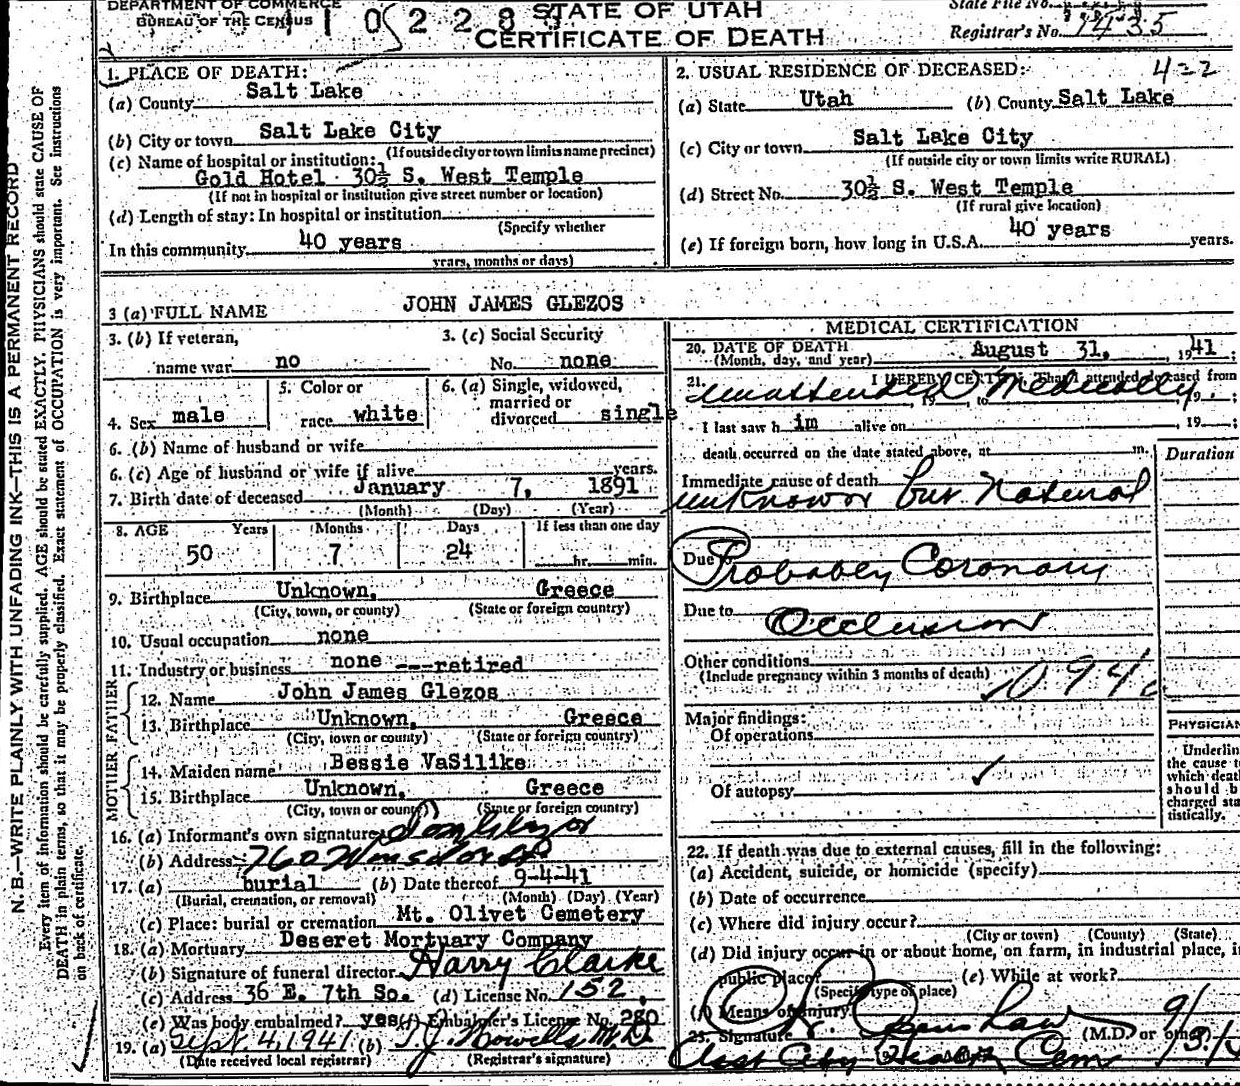 DEPARTMENT OF COMMERCE
BUREAU OF THE CENSUS
STATE OF UTAH
CERTIFICATE OF DEATH
State File No.
Registrar's No. 1435
N. B.—WRITE PLAINLY WITH UNFADING INK—THIS IS A PERMANENT RECORD
Every item of information should be carefully supplied. AGE should be stated EXACTLY. PHYSICIANS should state CAUSE OF
DEATH in plain terms, so that it may be properly classified. Exact statement of OCCUPATION is very important. See instructions
on back of certificate.
1. PLACE OF DEATH:
(a) County Salt Lake
(b) City or town Salt Lake City
(If outside city or town limits name precinct)
(c) Name of hospital or institution:
Gold Hotel 30½ S. West Temple
(If not in hospital or institution give street number or location)
(d) Length of stay: In hospital or institution
(Specify whether
In this community 40 years
years, months or days)
2. USUAL RESIDENCE OF DECEASED: 422
(a) State Utah (b) County Salt Lake
(c) City or town Salt Lake City
(If outside city or town limits write RURAL)
(d) Street No. 30½ S. West Temple
(If rural give location)
(e) If foreign born, how long in U.S.A. 40 years years.
3 (a) FULL NAME JOHN JAMES GLEZOS
3. (b) If veteran,
name war no
3. (c) Social Security
No. none
4. Sex male
5. Color or
race white
6. (a) Single, widowed,
married or
divorced single
6. (b) Name of husband or wife
6. (c) Age of husband or wife if alive years.
7. Birth date of deceased January 7, 1891
(Month) (Day) (Year)
8. AGE Years Months Days If less than one day
50 7 24 hr. min.
9. Birthplace Unknown, Greece
(City, town, or county) (State or foreign country)
10. Usual occupation none
11. Industry or business none ---retired
FATHER
12. Name John James Glezos
13. Birthplace Unknown, Greece
(City, town or county) (State or foreign country)
MOTHER
14. Maiden name Bessie VaSilike
15. Birthplace Unknown, Greece
(City, town or county) (State or foreign country)
16. (a) Informant's own signature Glezos
(b) Address 760
17. (a) burial (b) Date thereof 9-4-41
(Burial, cremation, or removal) (Month) (Day) (Year)
(c) Place: burial or cremation Mt. Olivet Cemetery
18. (a) Mortuary Deseret Mortuary Company
(b) Signature of funeral director Harry Clarke
(c) Address 36 E. 7th So. (d) License No. 152
(e) Was body embalmed? yes (f) Embalmer's License No. 280
19. (a) Sept. 4, 1941 (b) T.J. Howells M.D.
(Date received local registrar) (Registrar's signature)
MEDICAL CERTIFICATION
20. DATE OF DEATH
(Month, day, and year) August 31, 1941;
21. I HEREBY CERTIFY, That I attended deceased from
unattended Medically
19 to 19 ;
I last saw him alive on , 19 ;
death occurred on the date stated above, at m.
Duration
Immediate cause of death
unknown but Natural
Due to Probabley Coronary
Due to Occlusion
Other conditions
(Include pregnancy within 3 months of death)
Major findings:
Of operations
Of autopsy
PHYSICIAN
Underlin
the cause t
which deat
should b
charged sta
tistically.
22. If death was due to external causes, fill in the following:
(a) Accident, suicide, or homicide (specify)
(b) Date of occurrence
(c) Where did injury occur?
(City or town) (County) (State)
(d) Did injury occur in or about home, on farm, in industrial place, i
public place? (e) While at work?
(Specify type of place)
(f) Means of injury
23. Signature (M.D. or other)
Asst City Health Com